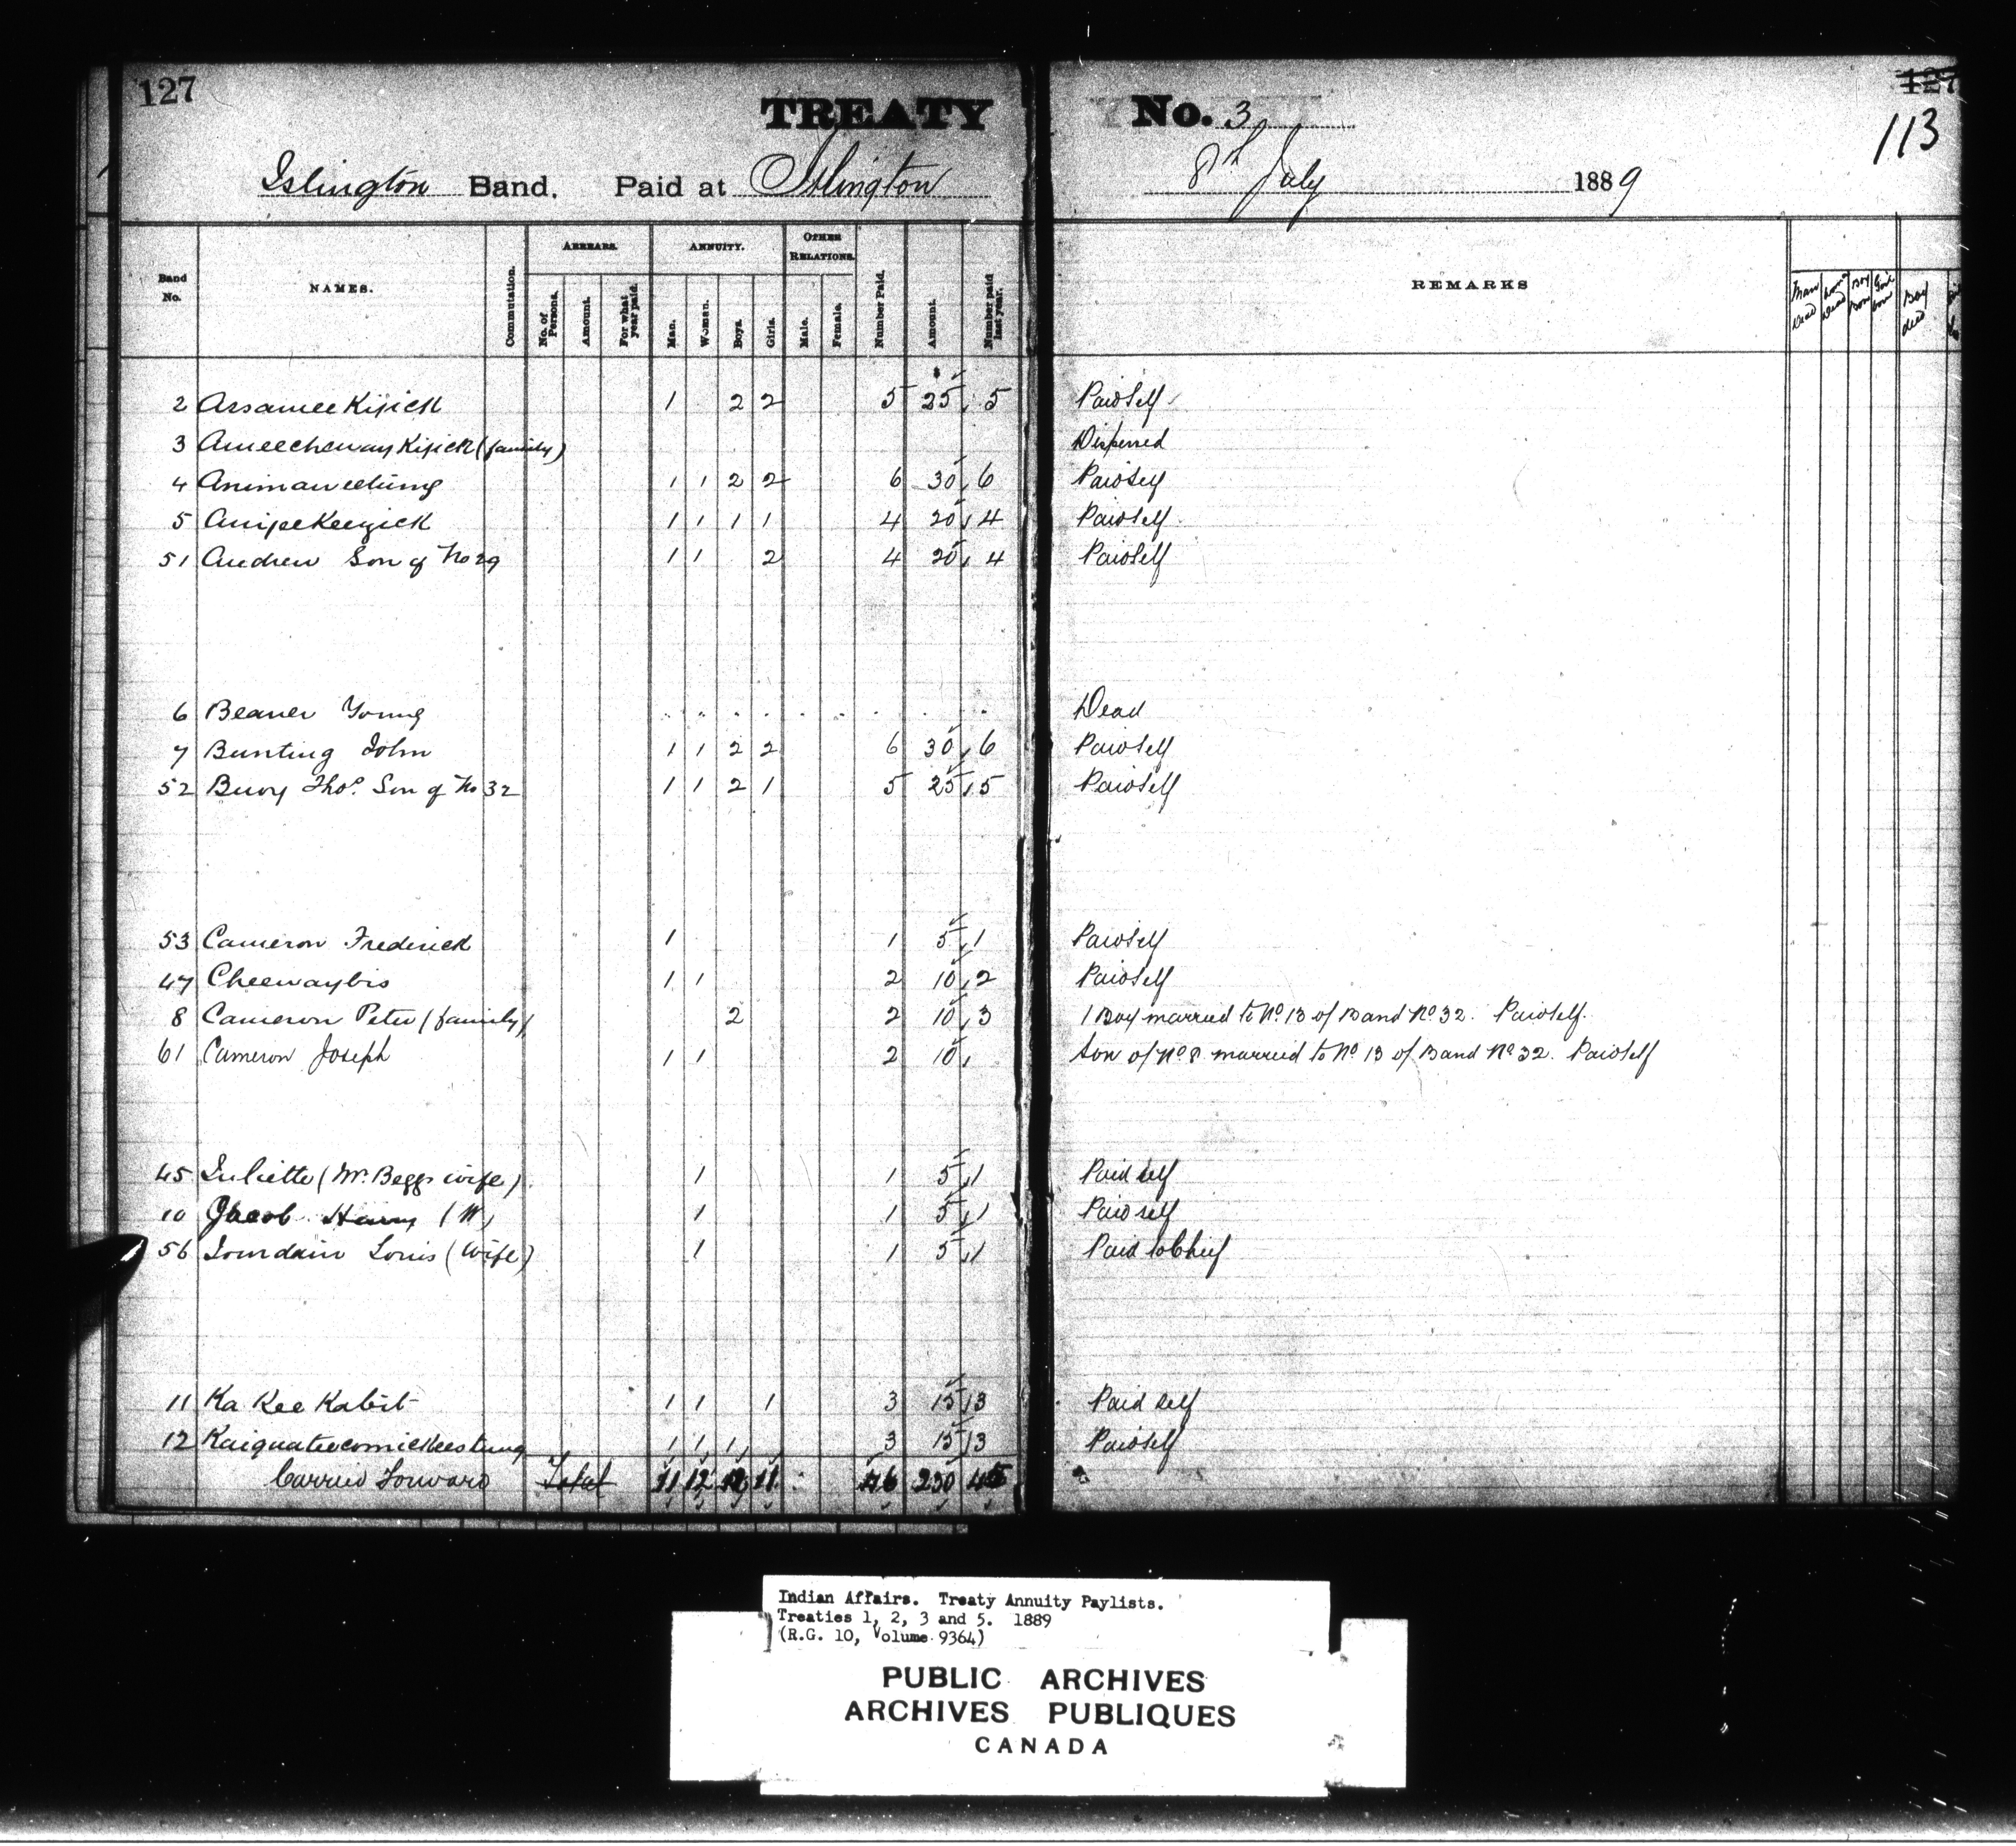 127
TREATY No. 3
127
113
Islington Band. Paid at Islington 8th July 1889
Band No. NAMES. Commutation. ARREARS. No. of Persons. Amount. For what year paid. ANNUITY. Man. Woman. Boys. Girls. OTHER RELATIONS. Male. Female. Number Paid. Amount. Number paid last year. REMARKS Man Dead Boy Born Girl born Boy died
2 Arsamee Kijick 1 2 2 5 $25 5 Paid Self
3 Ameecheway Kijick (family) Dispersed
4 Animaweetung 1 1 2 2 6 30 6 Paid Self
5 Anipe Keezick 1 1 1 1 4 20 4 Paid Self
51 Andrew Son of No 29 1 1 2 4 20 4 Paid Self
6 Beaver Young Dead
7 Bunting John 1 1 2 2 6 30 6 Paid Self
52 Buoy Thos. Son of No 32 1 1 2 1 5 25 5 Paid Self
53 Cameron Frederick 1 1 5 1 Paid Self
47 Cheewaybis 1 1 2 10 2 Paid Self
8 Cameron Peter (family) 2 2 10 3 1 Boy married to No. 13 of Band No. 32. Paid Self.
61 Cameron Joseph 1 1 2 10 Son of No. 8 married to No. 13 of Band No. 32. Paid Self
45 Juliette (Mr. Beggs wife) 1 1 5 1 Paid self
10 Jacob Harry (W) 1 1 5 1 Paid self
56 Jourdain Louis (Wife) 1 1 5 1 Paid to Chief
11 Ka Kee Kabit 1 1 1 3 15 3 Paid self
12 Kaiquatecomickeestung 1 1 1 3 15 3 Paid Self
Carried Forward Total 11 12 12 11 46 230 46
Indian Affairs. Treaty Annuity Paylists.
Treaties 1, 2, 3 and 5. 1889
(R.G. 10, Volume 9364)
PUBLIC ARCHIVES
ARCHIVES PUBLIQUES
CANADA